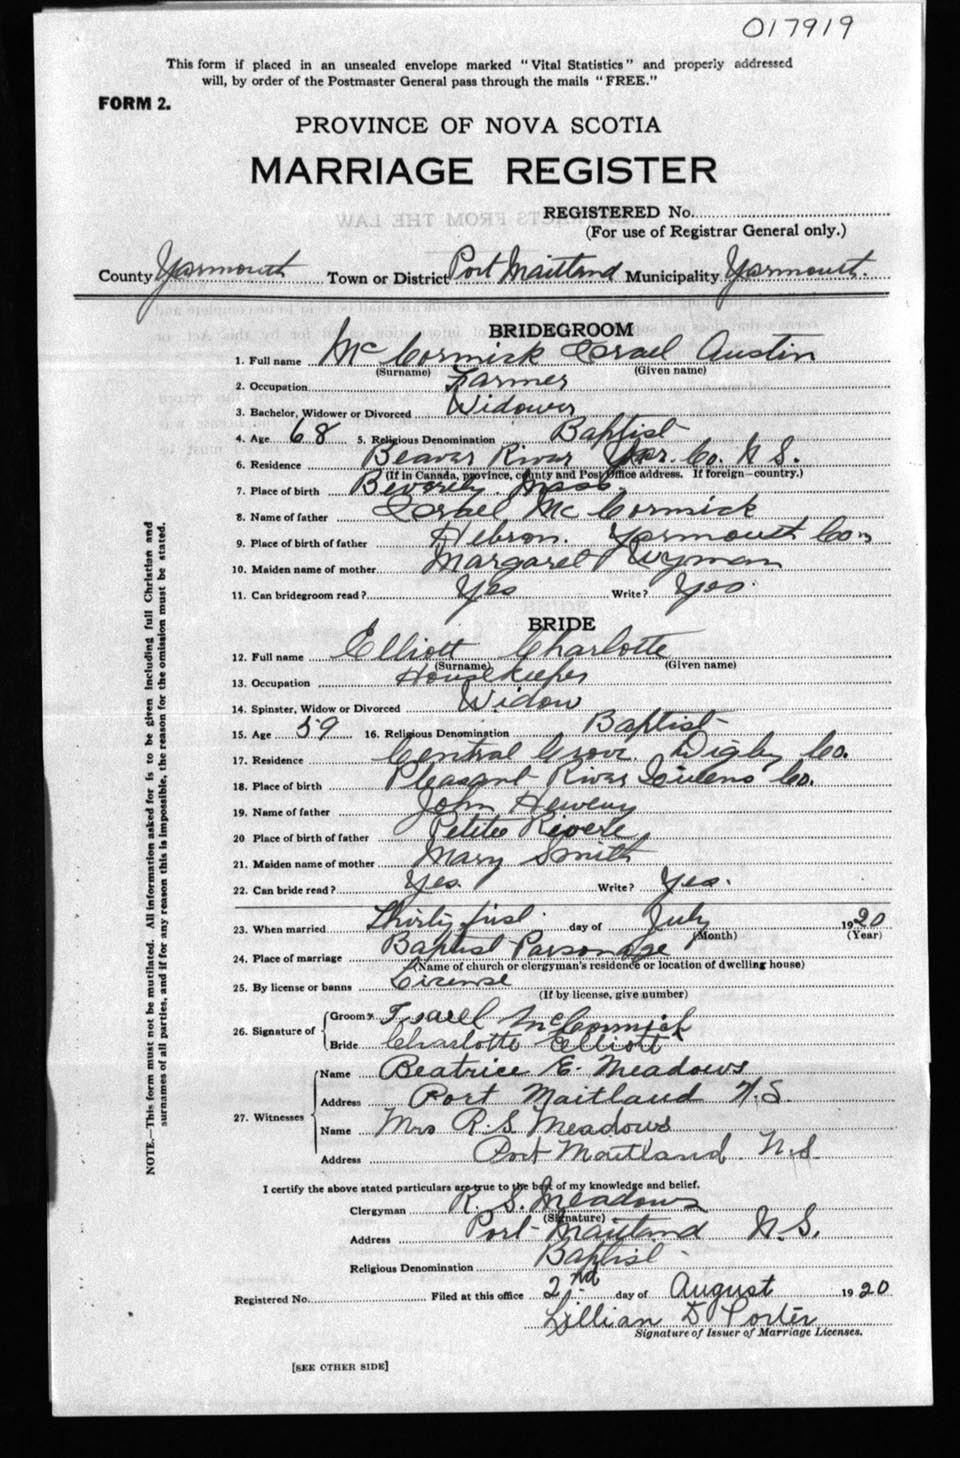 017919
This form if placed in an unsealed envelope marked "Vital Statistics" and properly addressed
will, by order of the Postmaster General pass through the mails "FREE."
FORM 2.
PROVINCE OF NOVA SCOTIA
MARRIAGE REGISTER
REGISTERED No.
(For use of Registrar General only.)
County Yarmouth Town or District Port Maitland Municipality Yarmouth.
BRIDEGROOM
1. Full name McCormick Israel Austin
(Surname) (Given name)
2. Occupation Farmer
3. Bachelor, Widower or Divorced Widower
4. Age 68 5. Religious Denomination Baptist
6. Residence Beaver River Yar. Co. N S.
(If in Canada, province, county and Post Office address. If foreign—country.)
7. Place of birth Beverly. Mass.
8. Name of father Israel McCormick
9. Place of birth of father Hebron. Yarmouth Co.
10. Maiden name of mother Margaret Wyman
11. Can bridegroom read? Yes Write? Yes.
BRIDE
12. Full name Elliott Charlotte
(Surname) (Given name)
13. Occupation Housekeeper
14. Spinster, Widow or Divorced Widow
15. Age 59 16. Religious Denomination Baptist
17. Residence Central Grove. Digby Co.
18. Place of birth Pleasant River Co.
19. Name of father John
20 Place of birth of father Petite Riverle
21. Maiden name of mother Mary Smith
22. Can bride read? Yes. Write? Yes.
23. When married Thirty first. day of July 1920
(Month) (Year)
24. Place of marriage Baptist Parsonage
(Name of church or clergyman's residence or location of dwelling house)
25. By license or banns License
(If by license, give number)
26. Signature of Groom Israel McCormick
Bride Charlotte Elliott
27. Witnesses Name Beatrice E. Meadows
Address Port Maitland N.S.
Name Mrs R.S. Meadows
Address Port Maitland. N.S.
I certify the above stated particulars are true to the best of my knowledge and belief.
Clergyman R. S. Meadows
(Signature)
Address Port Maitland N.S.
Religious Denomination Baptist
Registered No. Filed at this office 2nd day of August 1920
Lillian D Porter
Signature of Issuer of Marriage Licenses.
[SEE OTHER SIDE]
NOTE.—This form must not be mutilated. All information asked for is to be given including full Christian and
surnames of all parties, and if for any reason this is impossible, the reason for the omission must be stated.